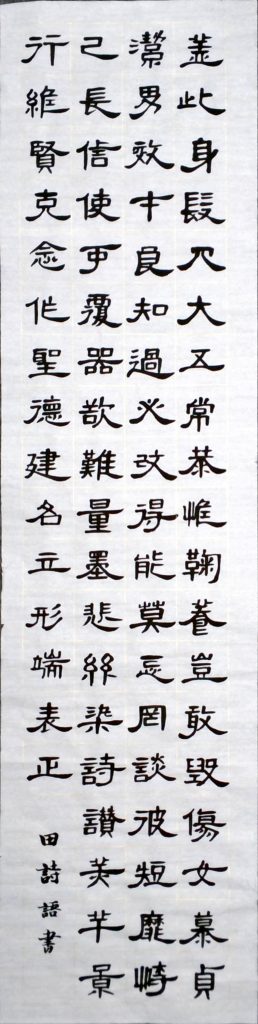 蓋此身髮四大五常恭惟鞠養豈敢毀傷女慕貞
潔男效才良知過必改得能莫忘罔談彼短靡恃
己長信使可覆器欲難量墨悲絲染詩讚羔羊景
行維賢克念作聖德建名立形端表正
田詩語書